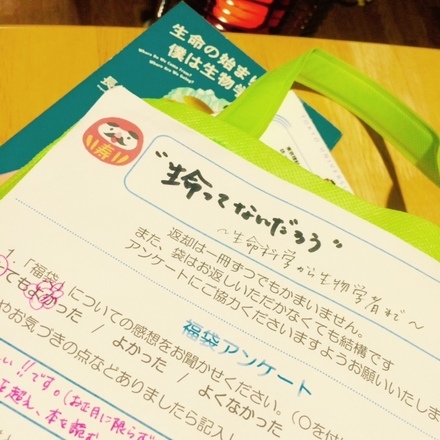 生命の始まり
Where Do We Come From?
Where Are We Going?
僕は生物学
長
寿
"生命ってなんだろう"
〜生命科学から生物学者まで〜
返却は一冊ずつでもかまいません。
また、袋はお返しいただかなくても結構です
アンケートにご協力くださいますようお願いいたしま
福袋アンケート
1.「福袋」についての感想をお聞かせください。(○を付
てもよかった / よかった / よくなかった
やお気づきの点などありましたら記入し
い!!です。(お正月に限らず
を超え、本を読む